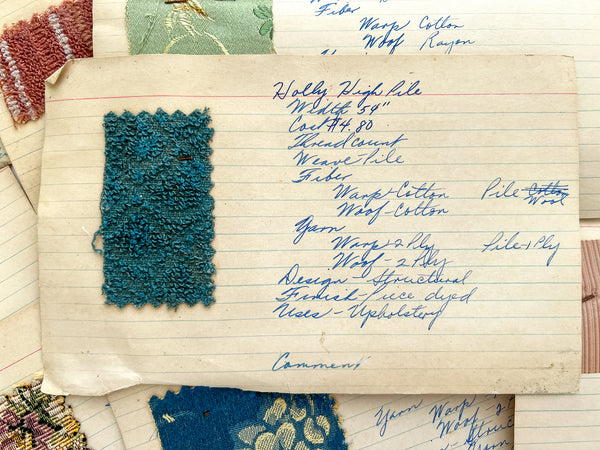 Fiber
Warp Cotton
Woof Rayon
Holly High Pile
Width 54"
Cost $4.80
Thread count
Weave-Pile
Fiber
Warp-Cotton Pile Cotton
Woof-Cotton Wool
Yarn
Warp-2 Ply Pile-1 Ply
Woof-2 Ply
Design - Structural
Finish-Piece dyed
Uses - Upholstery
Comment
Yarn
Warp
Woof